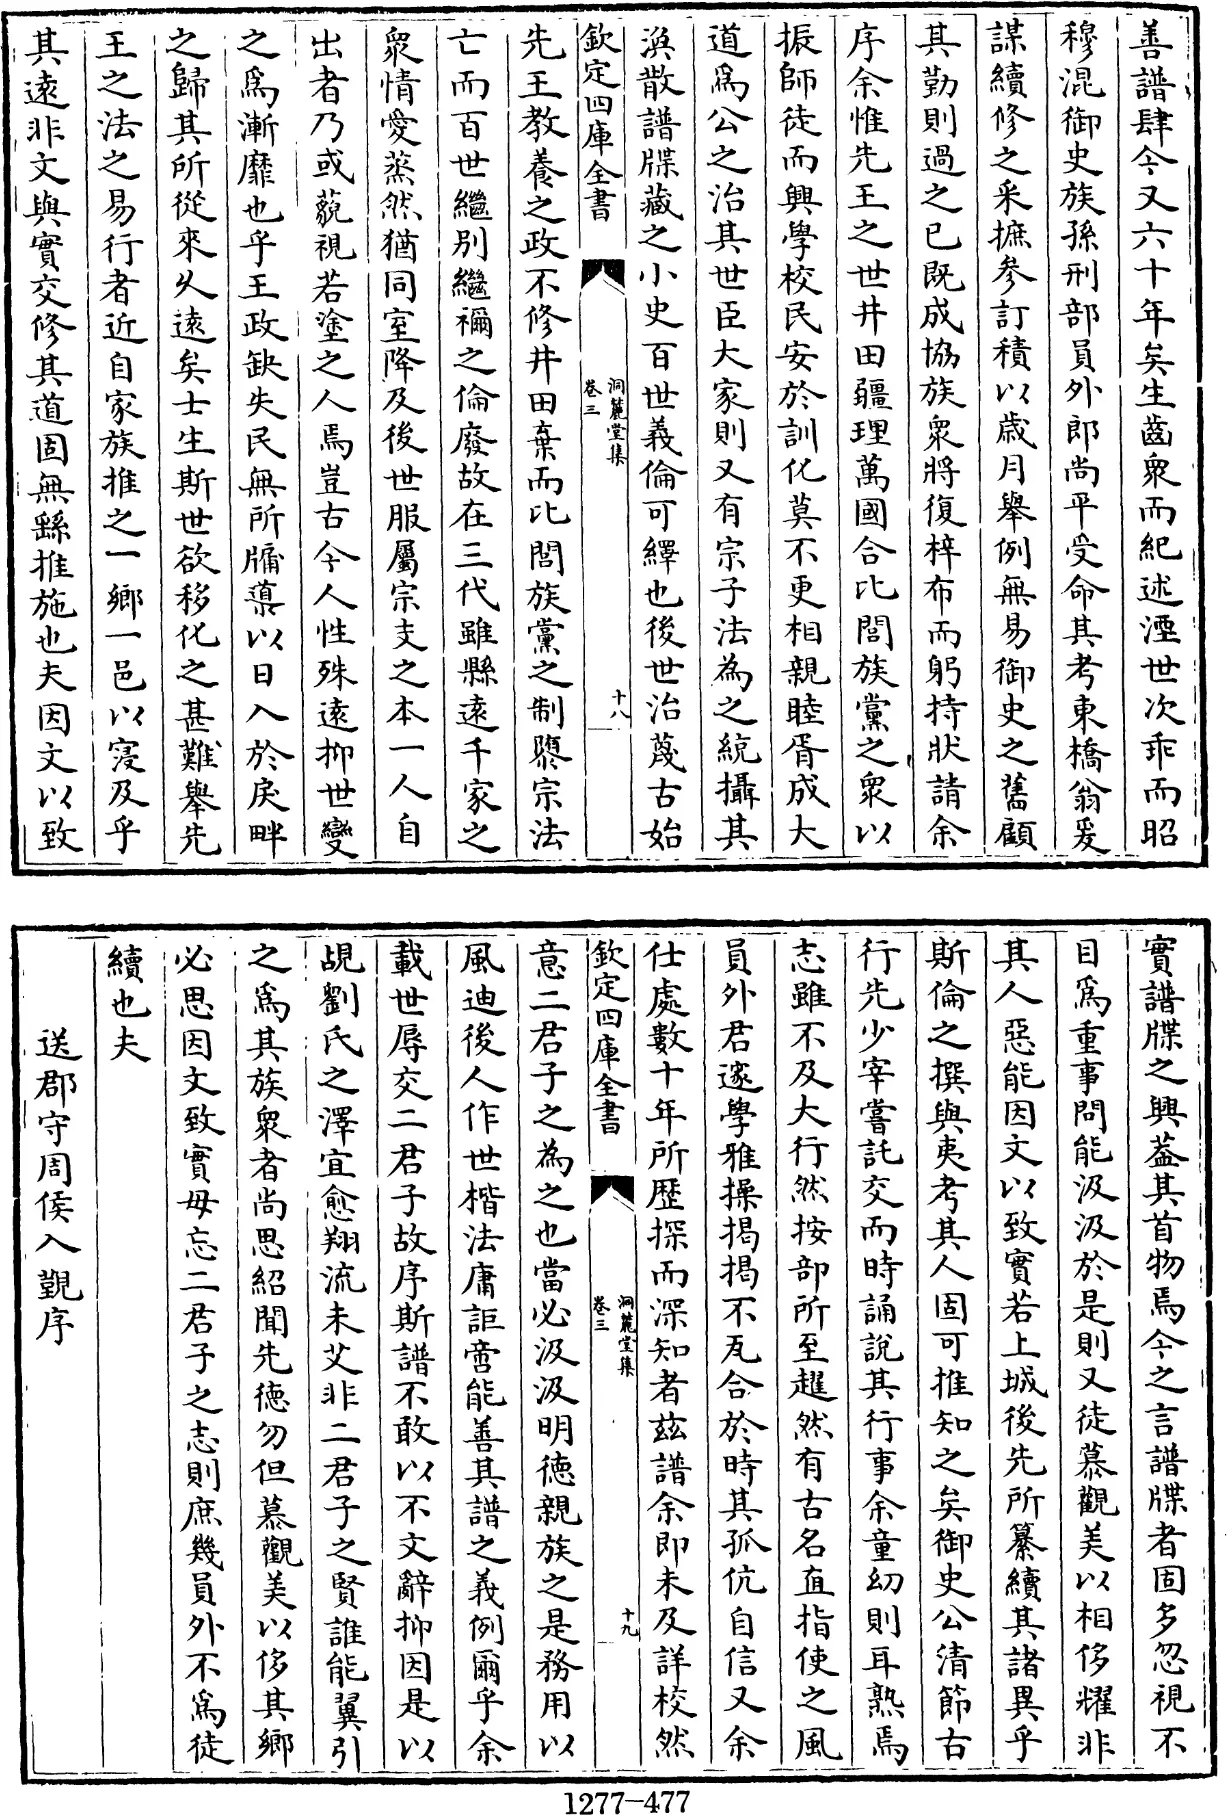 善譜肆今又六十年矣生齒衆而紀述湮世次乖而昭
穆混御史族孫刑部員外郎尚平受命其考東橋翁爰
謀續修之采摭參訂積以歳月舉例無易御史之舊顧
其勤則過之已既成協族衆將復梓布而躬持狀請余
序余惟先王之世井田疆理萬國合比閭族黨之衆以
振師徒而興學校民安於訓化莫不更相親睦胥成大
道爲公之治其世臣大家則又有宗子法為之統攝其
渙散譜牒藏之小史百世義倫可繹也後世治蔑古始
欽定四庫全書
洞麓堂集
卷三
十八
先王教養之政不修井田棄而比閭族黨之制隳宗法
亡而百世繼别繼禰之倫廢故在三代雖縣遠千家之
衆情愛蒸然猶同室降及後世服屬宗支之本一人自
出者乃或藐視若塗之人焉豈古今人性殊遠抑世變
之爲漸靡也乎王政缺失民無所牖導以日入於戾畔
之歸其所從來久遠矣士生斯世欲移化之甚難舉先
王之法之易行者近自家族推之一鄉一邑以寖及乎
其遠非文與實交修其道固無繇推施也夫因文以致
實譜牒之興葢其首物焉今之言譜牒者固多忽視不
目爲重事問能汲汲於是則又徒慕觀美以相侈耀非
其人惡能因文以致實若上城後先所纂續其諸異乎
斯倫之撰與夷考其人固可推知之矣御史公清節古
行先少宰嘗託交而時誦說其行事余童幼則耳熟焉
志雖不及大行然按部所至趯然有古名直指使之風
員外君邃學雅操揭揭不瓦合於時其孤伉自信又余
仕處數十年所歴探而深知者兹譜余即未及詳校然
欽定四庫全書
洞麓堂集
卷三
十九
意二君子之為之也當必汲汲明德親族之是務用以
風迪後人作世楷法庸詎啻能善其譜之義例爾乎余
載世辱交二君子故序斯譜不敢以不文辭抑因是以
覘劉氏之澤宜愈翔流未艾非二君子之賢誰能翼引
之爲其族衆者尚思紹聞先德勿但慕觀美以侈其鄉
必思因文致實毋忘二君子之志則庶幾員外不爲徒
續也夫
送郡守周侯入覲序
1277—477